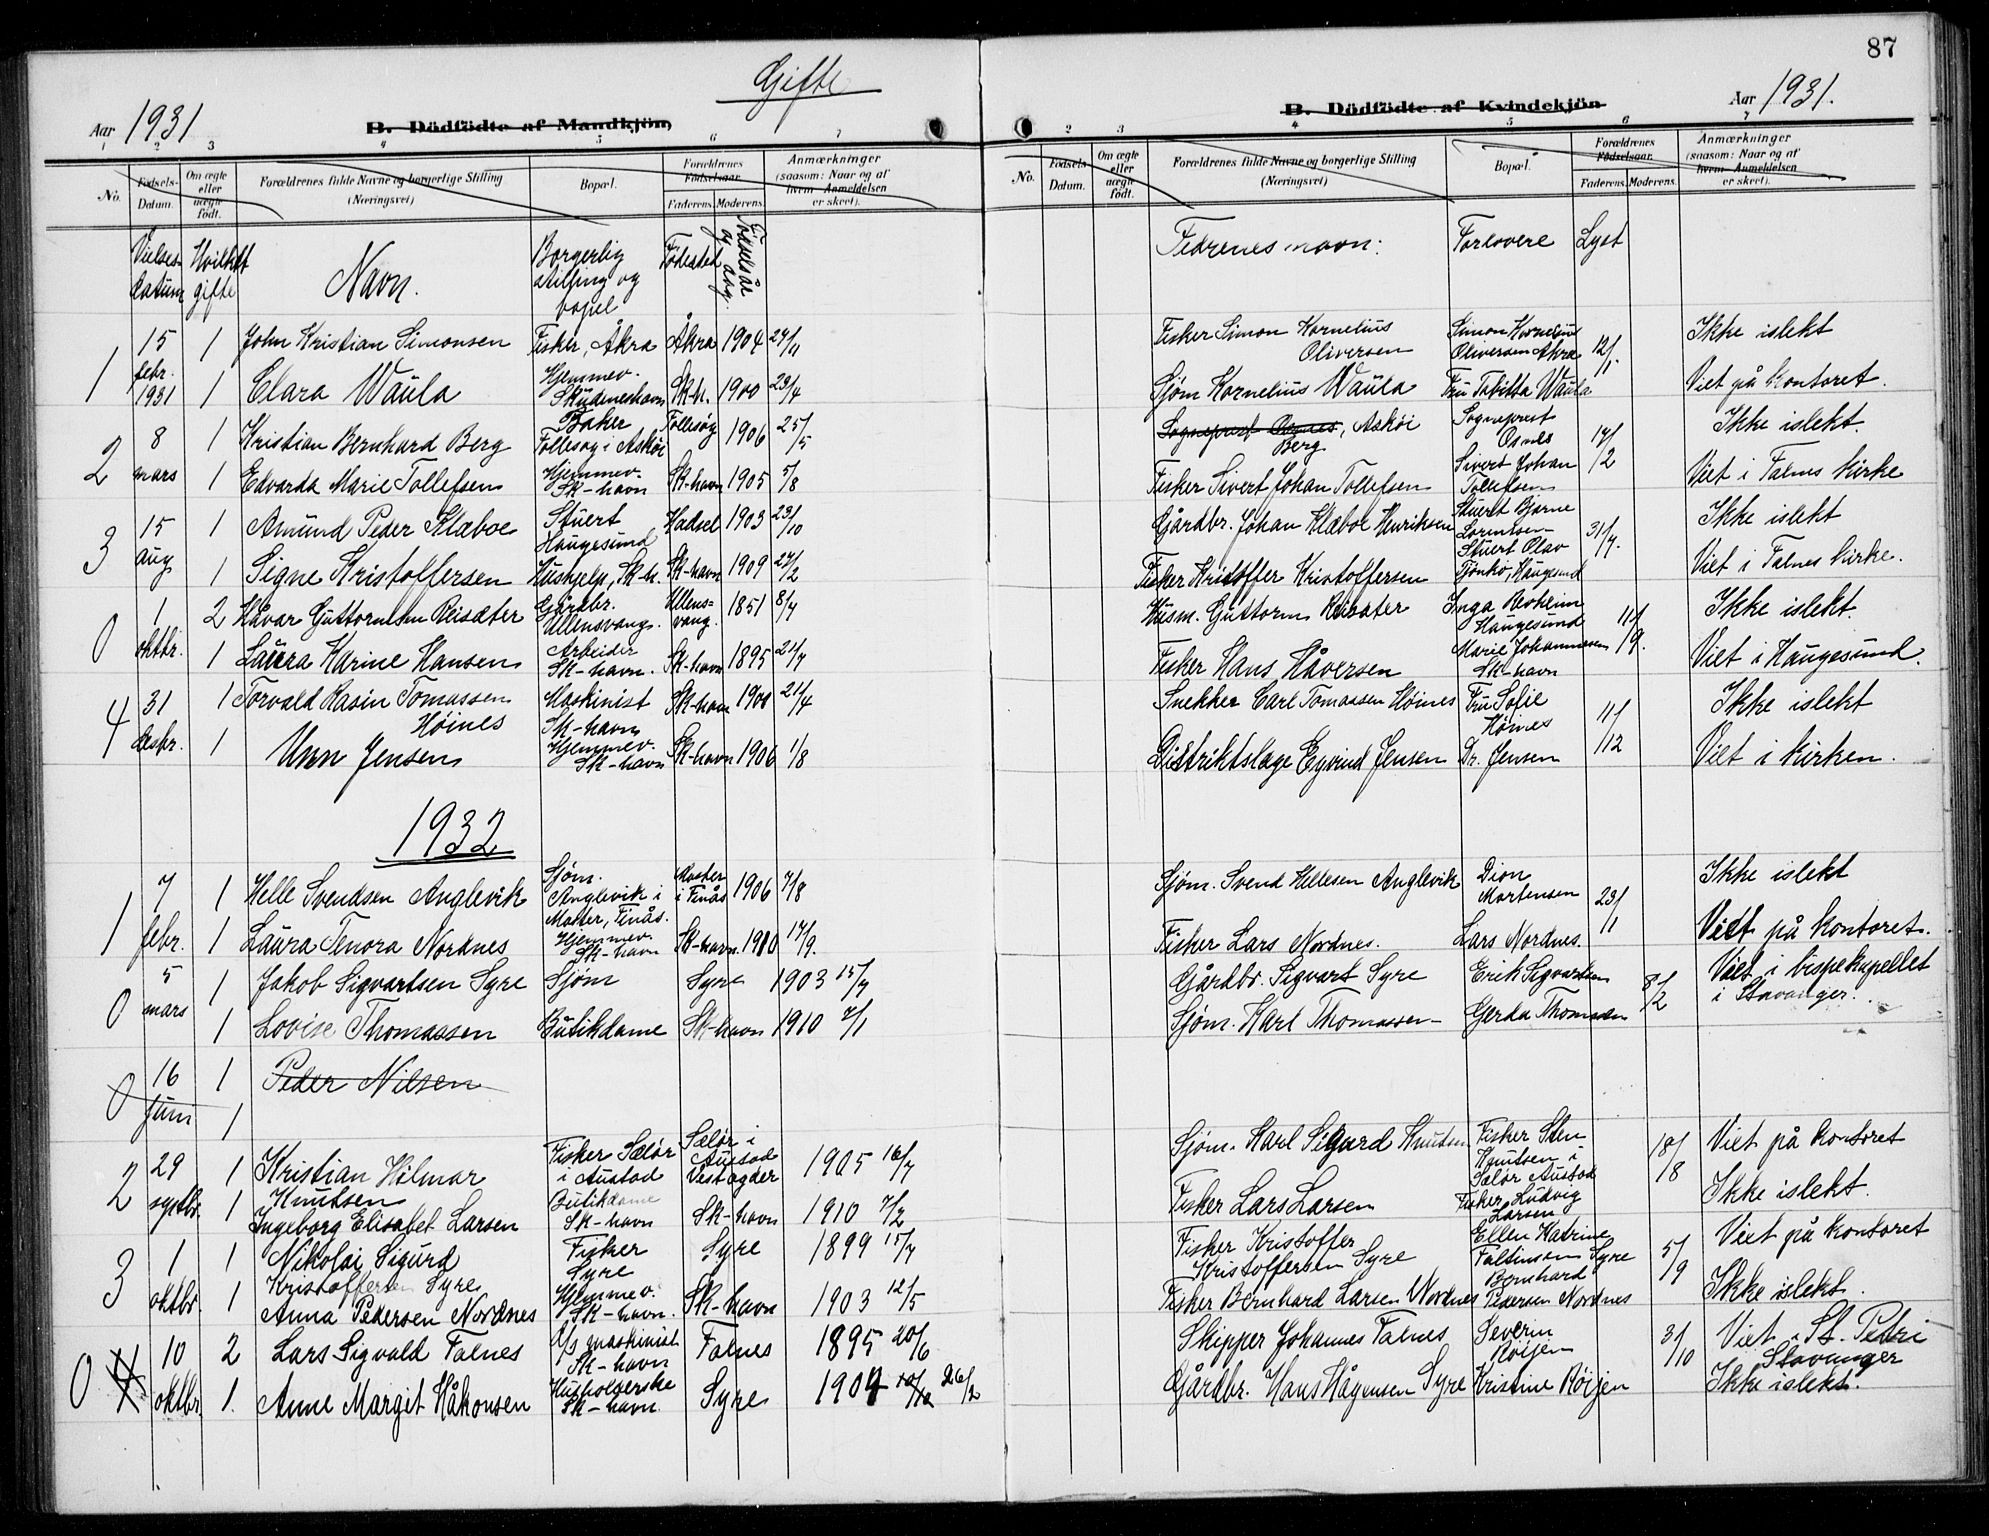 87
Gifte
Aar 1931
B. Dödfödte af Mandkjön,
B. Dödfödte af Kvindekjön
Aar 1931.
1 2 3 4 5 6 7
2 3 4 5 6 7
No.
Födsels-Datum.
Om ægte eller uægte födt.
Forældrenes fulde Navne og borgerlige Stilling (Næringsvei)
Bopæl.
Forældrenes Födselsaar.
Faderens. Moderens.
Anmærkninger (saasom: Naar og af hvem Anmeldelsen er skeet).
No.
Födsels Datum.
Om ægte eller uægte födt.
Forældrenes fulde Navne og borgerlige Stilling (Næringsvei)
Bopæl.
Forældrenes Födselsaar.
Faderens. Moderens.
Anmærkninger (saasom: Naar og af hvem Anmeldelsen er skeet).
Vielses-datum
Hvilket gifte
Navn.
Borgerlig stilling og bopel
Fødested
Fødselsår og dag.
Fedrenes navn:
Forlovere
Lyst
1 15 febr. 1931 1 John Kristian Simonsen Fisker, Åkra Åkra 1904 27/11 Fisker Simon Kornelius Oliversen Simon Kornelius Oliversen Åkra 12/1. Ikke i slekt
1 Clara Waula Hjemmev. Skudeneshavn Sk-h. 1900 23/4 Sjøm Kornelius Waula Fru Tabitta Waula Viet på kontoret.
2 8 mars 1 Kristian Bernhard Berg Baker Follesøy i Askøi Follesøy 1906 25/5 Sogneprest Osnes, Askøi Berg Sogneprest Osnes 17/2 Ikke i slekt.
1 Edvarda Marie Tollefsen Hjemmev. Sk-havn Sk-havn 1905 5/8 Fisker Sivert Johan Tollefsen Sivert Johan Tollefsen Viet i Falnes kirke
3 15 aug 1 Amund Peder Klæboe Stuert Haugesund Hadsel 1903 23/10 Gårdbr. Johan Klæboe Henriksen Stuert Bjarne Lorentsen 31/7. Ikke i slekt
1 Signe Kristoffersen Hushjelp, Sk-h. Sk-havn 1909 27/2 Fisker Kristoffer Kristoffersen Stuert Olav Tjønkø, Haugesund Viet i Falnes kirke.
0 1 oktbr. 2 Håvar Guttormsen Reisæter Gårdbr. Ullensvang. Ullens-vang. 1851 8/7 Husm. Guttorm Reisæter Inga Revheim Haugesund 11/9. Ikke i slekt.
1 Laura Karine Hansen Arbeider Sk-havn. Sk-havn 1895 21/7 Fisker Hans Håversen Marie Johannesen Sk-havn Viet i Haugesund.
4 31 desbr. 1 Torvald Rasin Tomassen Høines Maskinist Sk-havn Sk-havn 1900 21/4 Snekker Carl Tomassen Høines Fru Sofie Høines 11/12 Ikke i slekt
1 Unn Jensen Hjemmev. Sk-havn Sk-havn 1906 1/8 Distriktslæge Eyvind Jensen Dr. Jensen Viet i kirken.
1932
1 7 febr. 1 Helle Svendsen Anglevik Sjøm. Anglevik i Moster, Finås. Moster i Finås 1906 7/8 Sjøm. Svend Hellesen Anglevik Dion Mortensen 23/1 Ikke i slekt
1 Laura Tenora Nordnes Hjemmev. Sk-havn Sk-havn. 1910 17/9. Fisker Lars Nordnes. Lars Nordnes. Viet på kontoret.
0 5 mars 1 Jakob Sigvartsen Syre Sjøm Syre 1903 15/7 Gårdbr. Sigvart Syre Erik Sigvartsen 8/2 Viet i bispekapellet i Stavanger.
1 Lovise Thomassen Butikdame Sk-havn 1910 7/1 Sjøm. Karl Thomassen Gerda Thomsen
0 16 Juni 1 Peder Nilsen
1
2 29 septbr. 1 Kristian Hilmar Knutsen Fisker Sælør i Austad Sælør i Austad Vestagder 1905 16/7 Sjøm. Karl Sigurd Knutsen Fisker Sten Knutsen i Sælør Austad 18/8 Viet på kontoret
1 Ingeborg Elisabet Larsen Butikdame Sk-havn Sk-havn 1910 7/2 Fisker Lars Larsen Fisker Ludvig Larsen Ikke i slekt.
3 1 oktbr. 1 Nikolai Sigurd Kristoffersen Syre Fisker Syre Syre 1899 15/7 Fisker Kristoffer Kristoffersen Syre Ellen Katrine Faltinsen Syre 5/9 Viet på kontoret
1 Anna Pedersen Nordnes Hjemmev. Sk-havn. Sk-havn 1903 12/5 Fisker Bernhard Larsen Nordnes Bernhard Pedersen Nordnes Ikke i slekt.
0 4 10 oktbr. 2 Lars Sigvald Falnes maskinist Sk-havn Falnes 1895 20/6 Skipper Johannes Falnes Severin Røijen 3/10 Viet i St. Petri Stavanger
1. Anne Margit Håkonsen Husholderske Sk-havn. Syre 1904 10/12 26/2 Gårdbr. Hans Hågensen Syre Kristine Røijen Ikke i slekt.